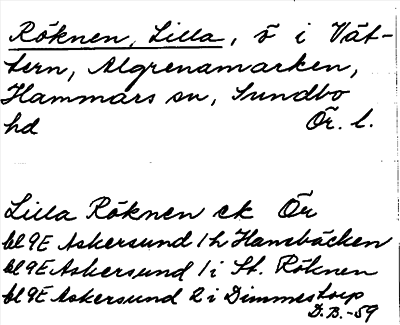 Röknen, Lilla, ö i Vät-
tern, Algrenamarken,
Hammars sn, Sundbo
hd Ör. l.
Lilla Röknen ek Ör
bl 9E Askersund 1h Hansbäcken
bl 9E Askersund 1i St. Röknen
bl 9E Askersund 2i Dimmestorp
D.B.-59